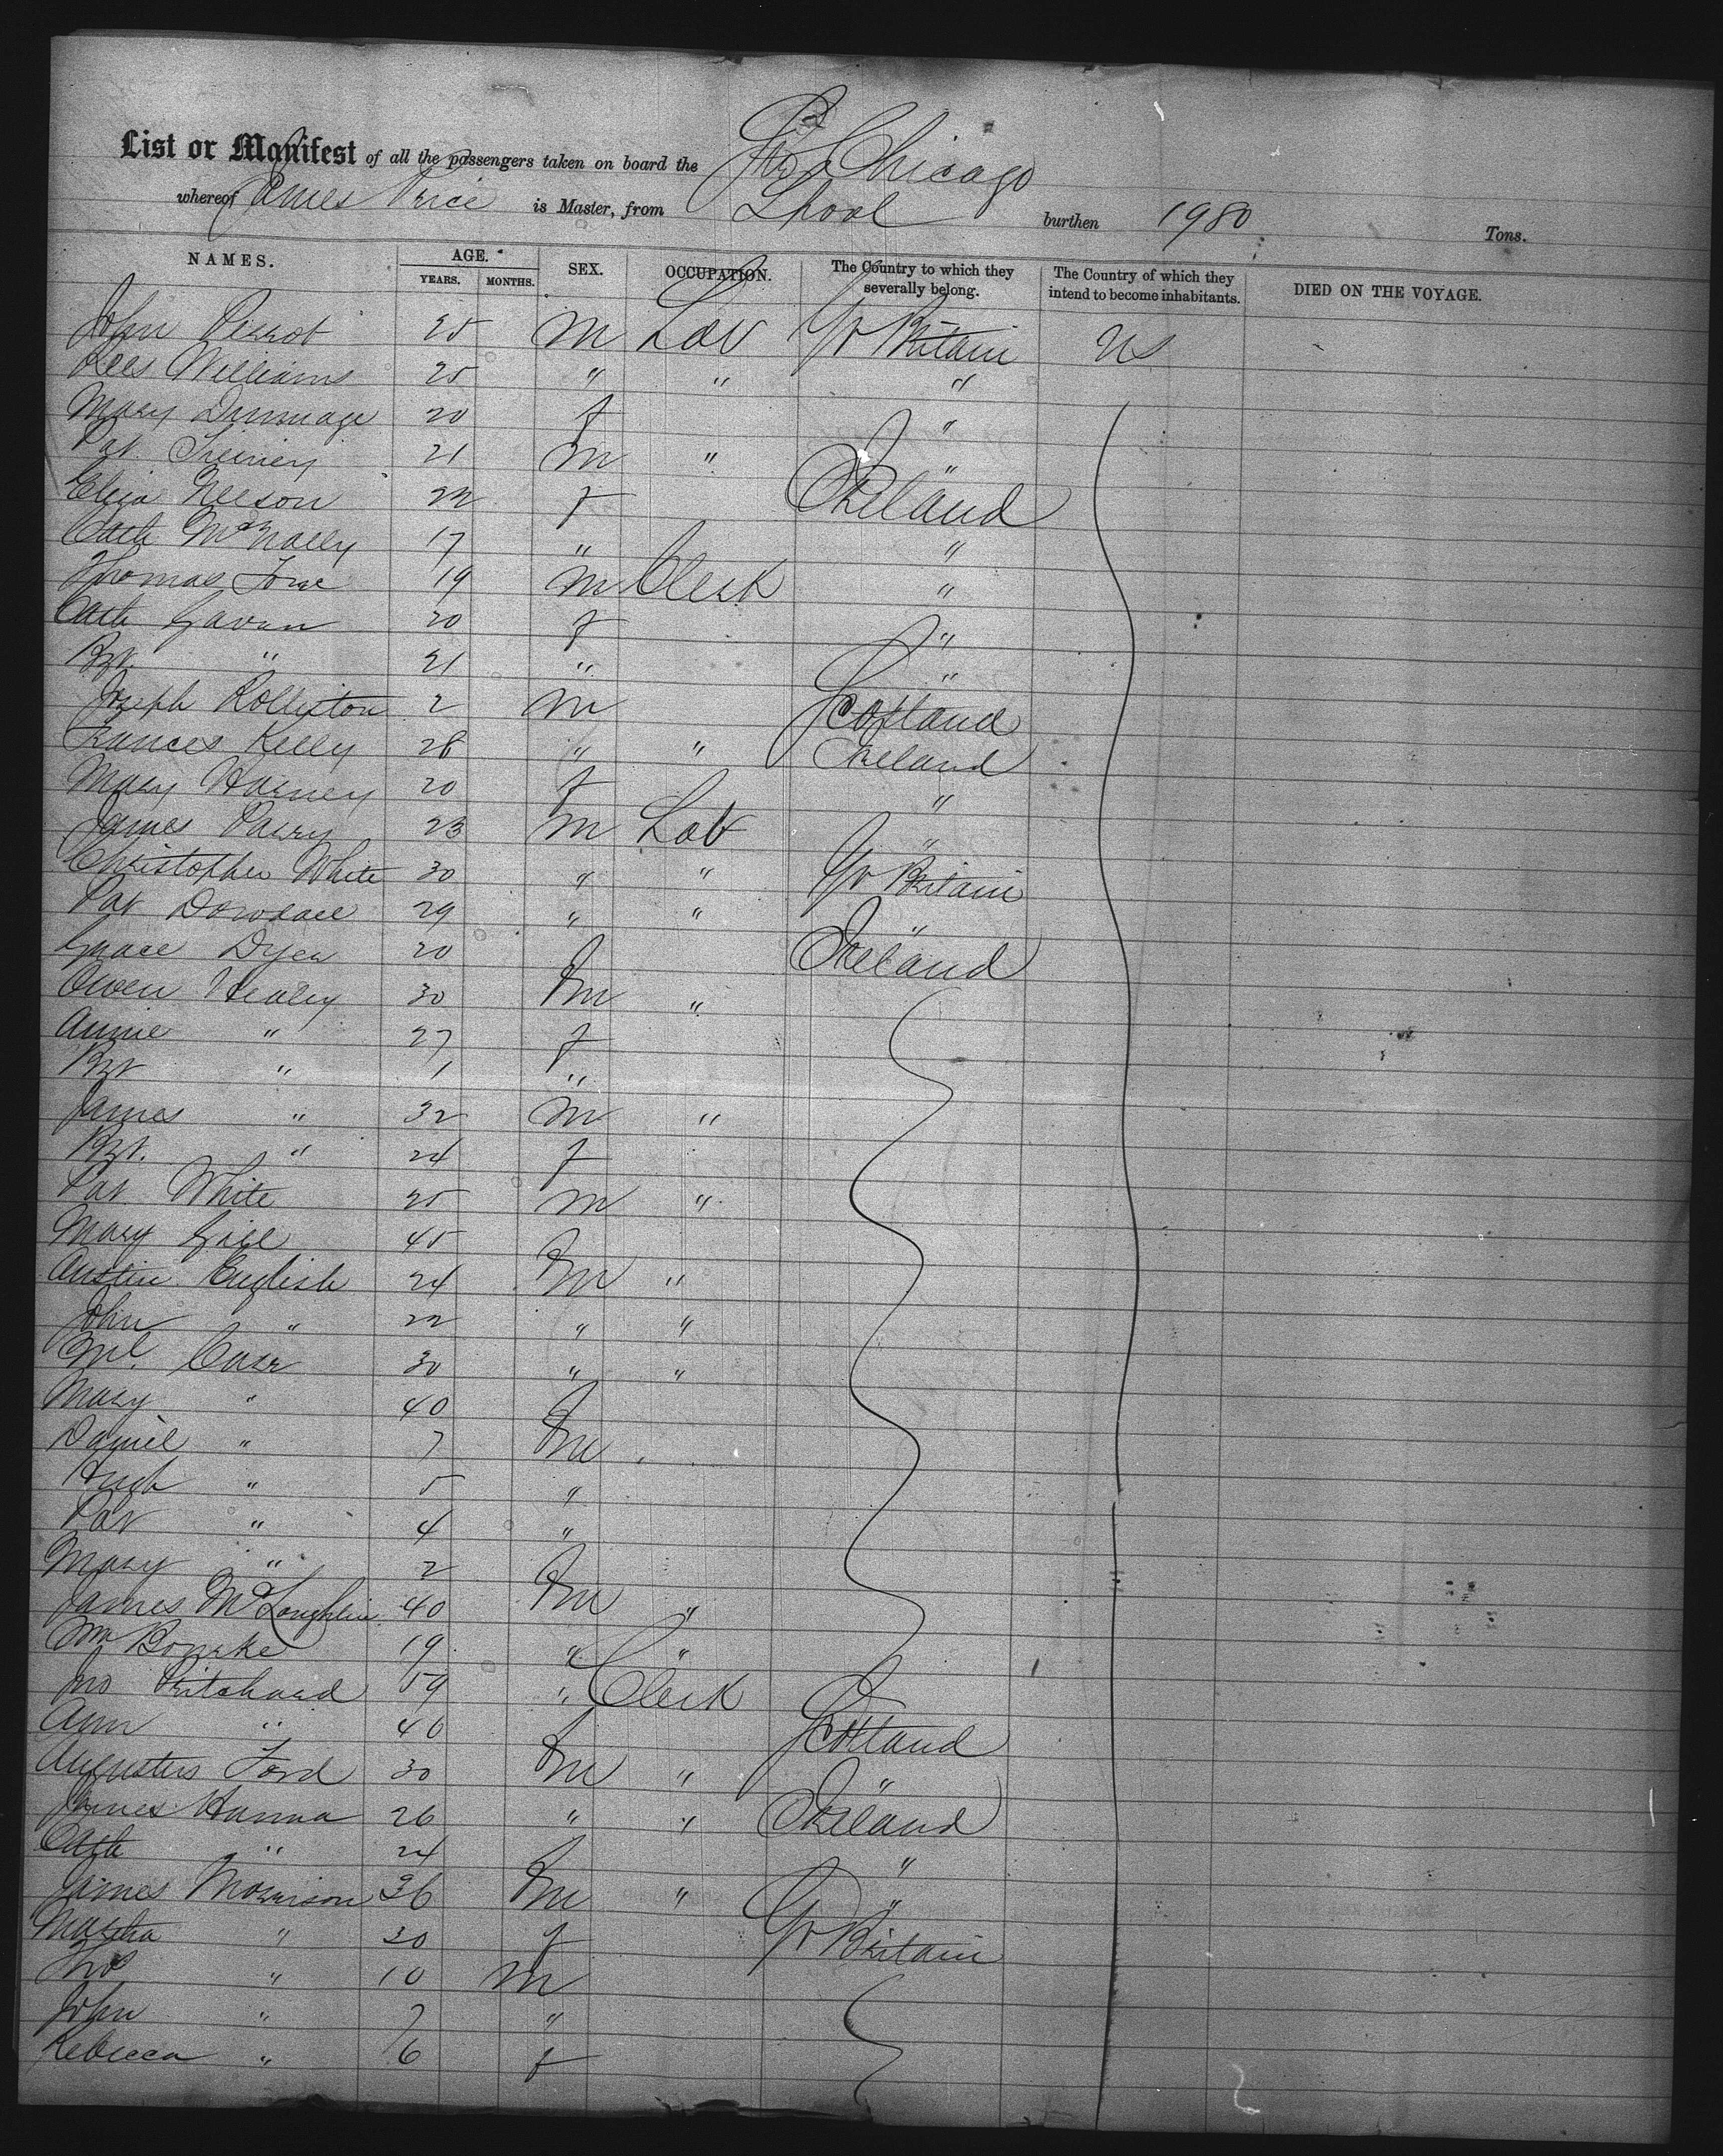 List or Manifest of all the passengers taken on board the Str Chicago
whereof James Price is Master, from Lpool burthen 1980 Tons.
NAMES. AGE. YEARS. MONTHS. SEX. OCCUPATION. The Country to which they severally belong. The Country of which they intend to become inhabitants. DIED ON THE VOYAGE.
John Perrot 25 m Lab Gr Britain US
Rees Williams 25 " " "
Mary 20 f "
Pat. 21 m " "
Eliza Neeson 22 f Ireland
Cath McNally 17 " "
Thomas 19 m Clerk "
Cath Gavan 20 f "
Bgt. " 21 " "
Joseph Rolliston 2 m Scotland
Frances Kelly 28 " " Ireland
Mary Harney 20 f "
James Parry 23 m Lab "
Christopher White 30 " " Gr Britain
Pat Dowdall 29 " " "
Grace Dyer 20 f Ireland
Owen Healey 30 m "
Annie " 27 f
Bgt " 1 "
James " 32 m "
Bgt. " 24 f
Pat White 25 m "
Mary Gill 45 f
Austin English 24 m "
John " 22 " "
Ml. Carr 30 " "
Mary " 40 f
Daniel " 7 m
Hugh " 5 "
Pat " 4 "
Mary " 2 f
James McLoughlin 40 m "
Wm Bourke 19 " "
Jno Pritchard 59 " Clerk
Ann " 40 f Scotland
Augustus Ford 30 m " "
James Hanna 26 " " Ireland
Cath " 24 f "
James Morrison 36 m " "
Martha " 30 f Gr Britain
Thos " 10 m
John " 7 "
Rebecca " 6 f